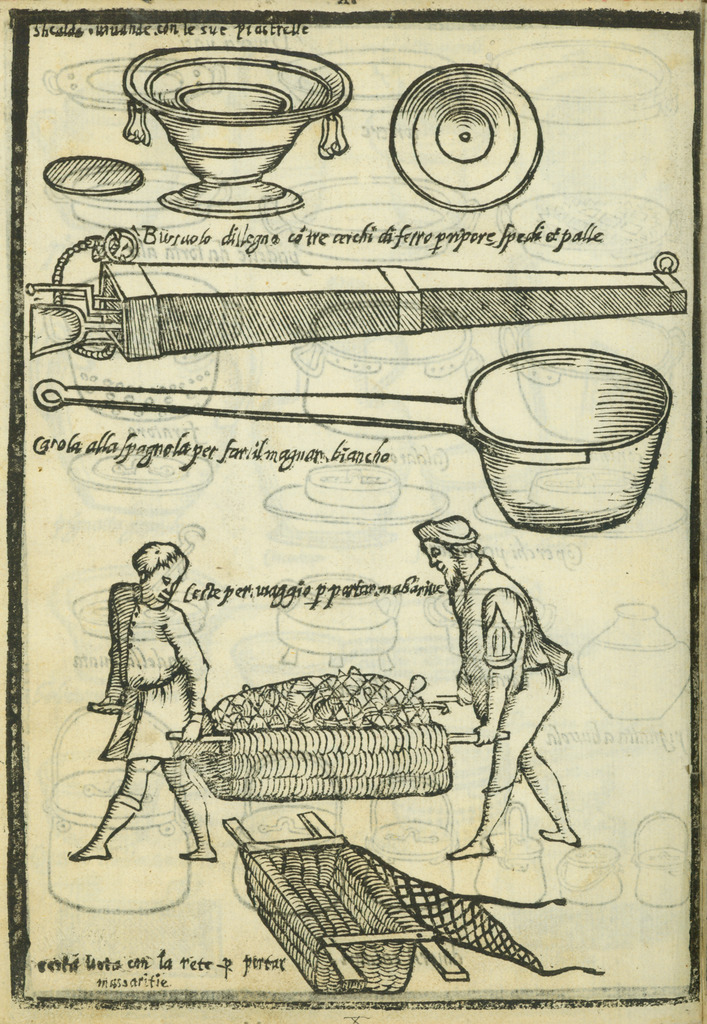 Shcalda uiuande con le sue piastrelle
Bussolo di legno cō tre cerchi di ferro p ripore spedi et palle
Cazola alla spagnola per far il magnar biancho
Ceste per uiaggio p portar masaritie
cesta uota con la rete p portar
massaritie